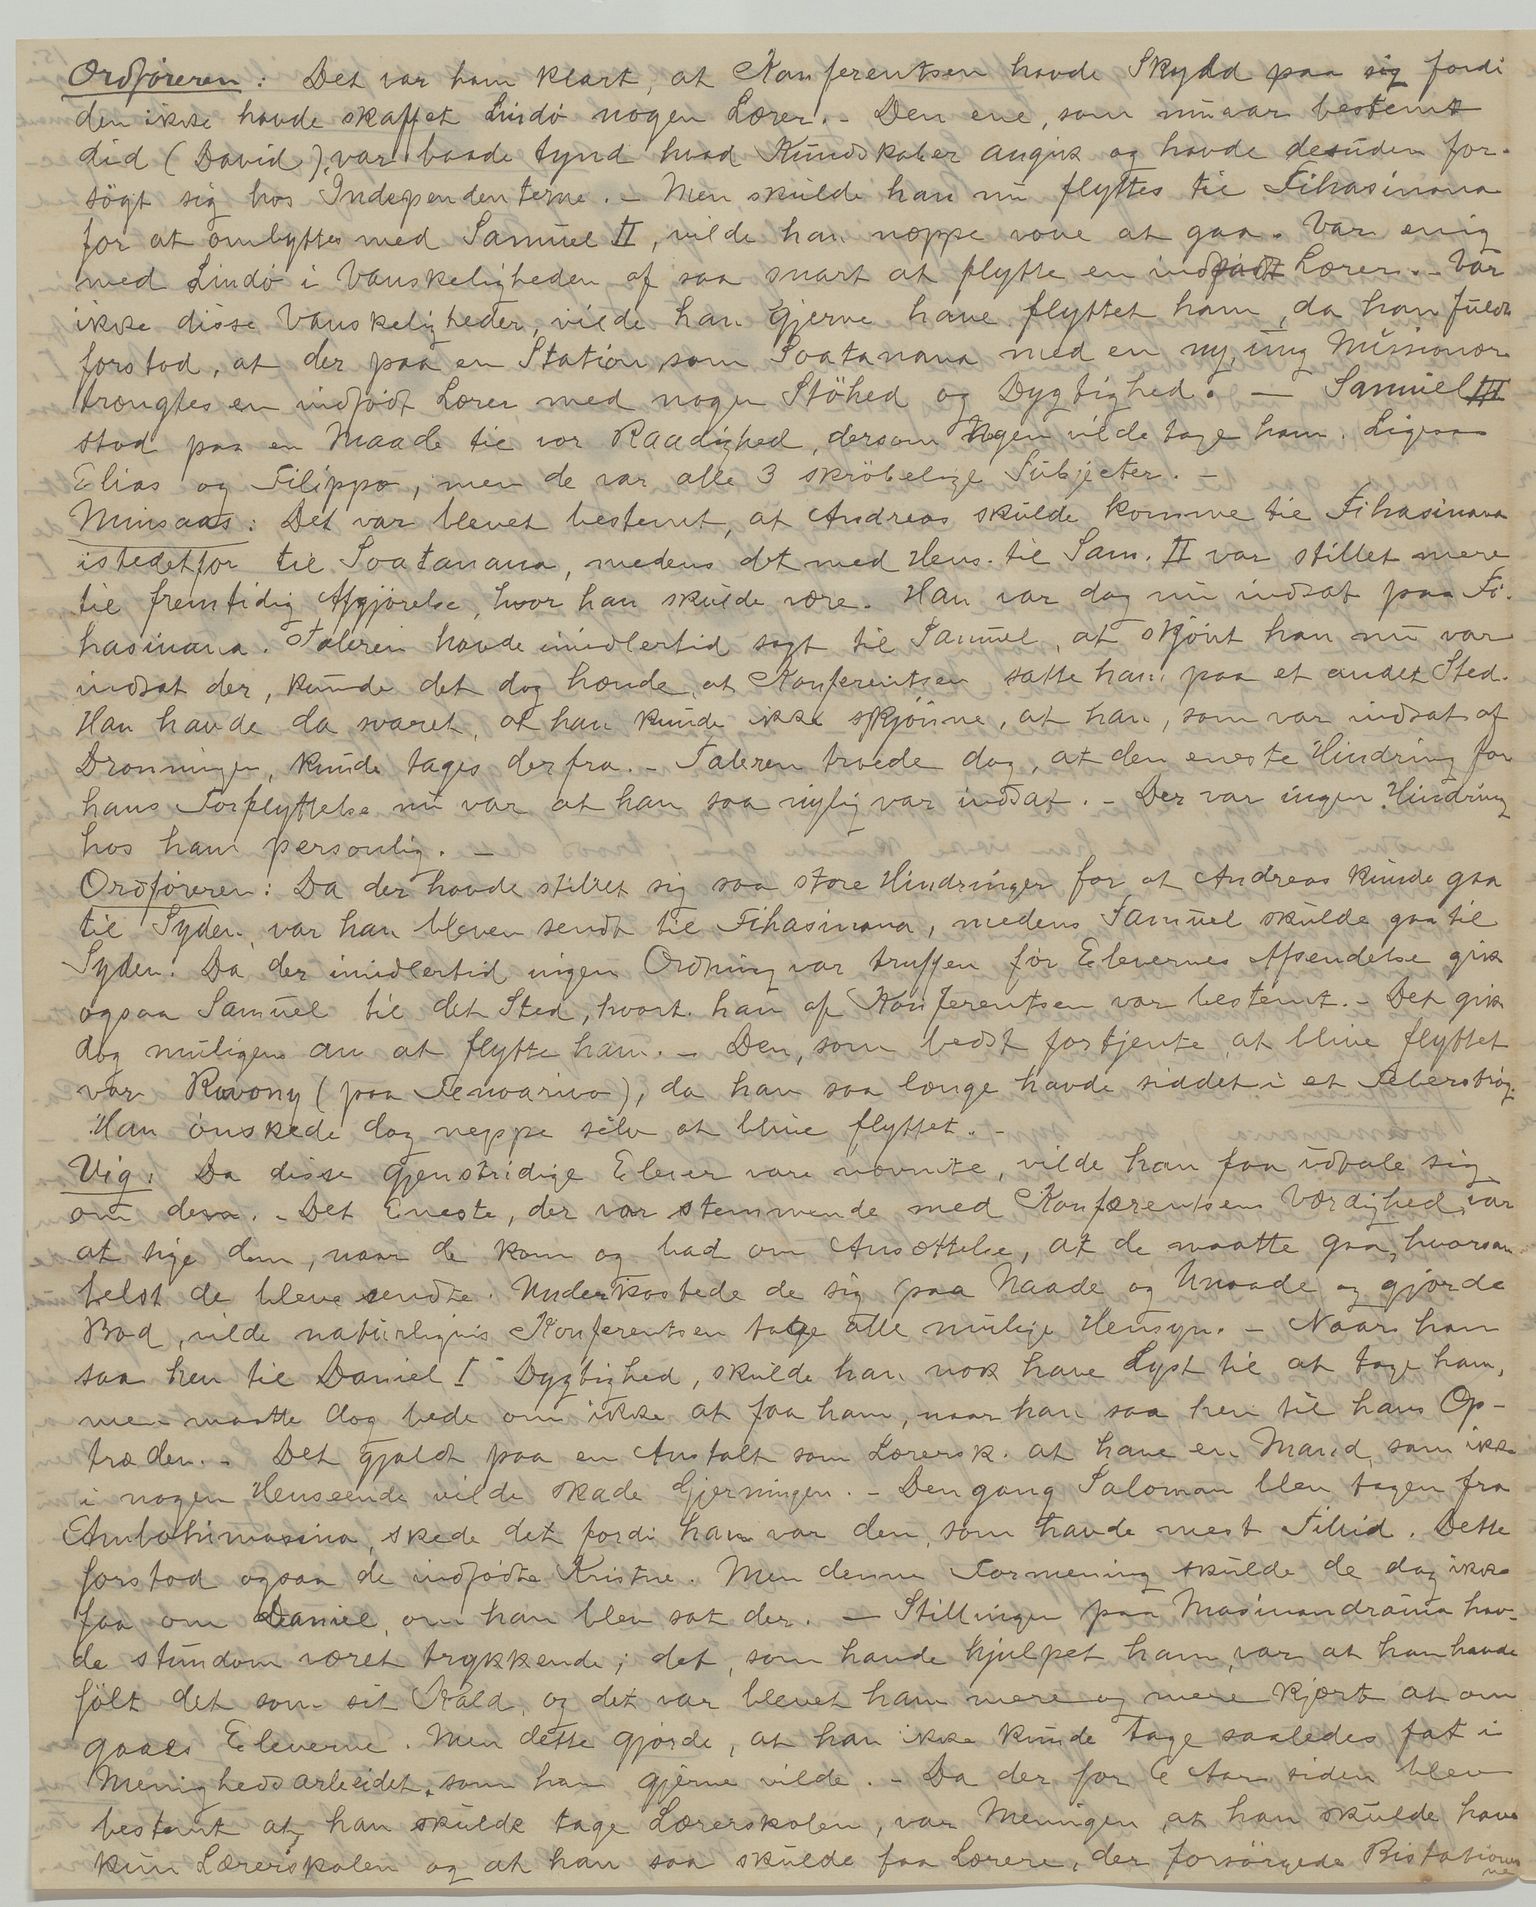 Ordføreren: Det var ham klart, at Konferentsen havde Skyld paa sig fordi
den ikke havde skaffet Lindø nogen Lærer. – Den ene, som nu var bestemt
did (David), var baade tynd hvad Kundskaber angik og havde desuden for-
søgt sig hos Independenterne. – Men skulde han nu flyttes til Fihasinana
for at ombyttes med Samuel II, vilde han neppe vove at gaa. Var enig
med Lindø i Vanskeligheden af saa snart at flytte en indfødt Lærer. – Var
ikke disse Vanskeligheder, vilde han gjerne have flyttet ham, da han fuldt
forstod, at der paa en Station som Soatanana med en ny, ung Missionær
trængtes en indfødt Lærer med nogen Støhed og Dygtighed. – Samuel III
stod paa en Maade til vor Raadighed, dersom Nogen vilde tage ham. Ligesaa
Elias og Filippo, men de var alle 3 skrøbelige Subjecter. –
Minsaas: Det var blevet bestemt, at Andreas skulde komme til Fihasinana
istedetfor til Soatanana, medens det med Hens. til Sam. II var stillet mere
til fremtidig Afgjørelse, hvor han skulde være. Han var dog nu indsat paa Fi-
hasinana. Taleren havde imidlertid sagt til Samuel, at skjønt han nu var
indsat der, kunde det dog hænde, at Konferentsen satte ham paa et andet Sted.
Han havde da svaret, at han kunde ikke skjønne, at han, som var indsat af
Dronningen, kunde tages derfra. – Taleren troede dog, at den eneste Hindring for
hans Forflyttelse nu var at han saa nylig var indsat. – Der var ingen Hindring
hos ham personlig. –
Ordføreren: Da der havde stillet sig saa store Hindringer for at Andreas kunde gaa
til Syden, var han bleven sendt til Fihasinana, medens Samuel skulde gaa til
Syden. Da der imidlertid ingen Ordning var truffen før Elevernes Afsendelse gik
ogsaa Samuel til det Sted, hvort. han af Konferentsen var bestemt. – Det gik
dog muligens an at flytte ham. – Den, som bedst fortjente at blive flyttet
var Ravony (paa Fenoarivo), da han saa længe havde siddet i et Feberstrøg.
Han ønskede dog neppe selv at blive flyttet. –
Vig: Da disse gjenstridige Elever vare nævnte, vilde han faa udtale sig
om dem. – Det Eneste, der var stemmende med Konferentsens Værdighed, var
at sige dem, naar de kom og bad om Ansættelse, at de maatte gaa, hvorsom-
helst de bleve sendte. Underkastede de sig paa Naade og Unaade og gjorde
Bod, vilde naturligvis Konferentsen tage alle mulige Hensyn. – Naar han
saa hen til Daniel I's Dygtighed, skulde han nok have Lyst til at tage ham,
men maatte dog bede om ikke at faa ham, naar han saa hen til hans Op-
træden. – Det gjaldt paa en Anstalt som Lærersk. at have en Mand, som ikke
i nogen Henseende vilde skade Gjerningen. – Dengang Saloman blev tagen fra
Ambohimasina, skede det fordi han var den, som havde mest Tillid. Dette
forstod ogsaa de indfødte Kristne. Men denne Formening skulde de dog ikke
faa om Daniel, om han blev sat der. – Stillingen paa Masinandraina hav-
de stundom været trykkende; det, som havde hjulpet ham, var at han havde
følt det som sit Kald, og det var blevet ham mere og mere kjært at om
gaaes Eleverne. Men dette gjorde, at han ikke kunde tage saaledes fat i
Menighedsarbeidet, som han gjerne vilde. – Da der for 6 Aar siden blev
bestemt at han skulde tage Lærerskolen, var Meningen at han skulde have
kun Lærerskolen og at han saa skulde faa Lærere, der forsørgede Bistationer-
ne